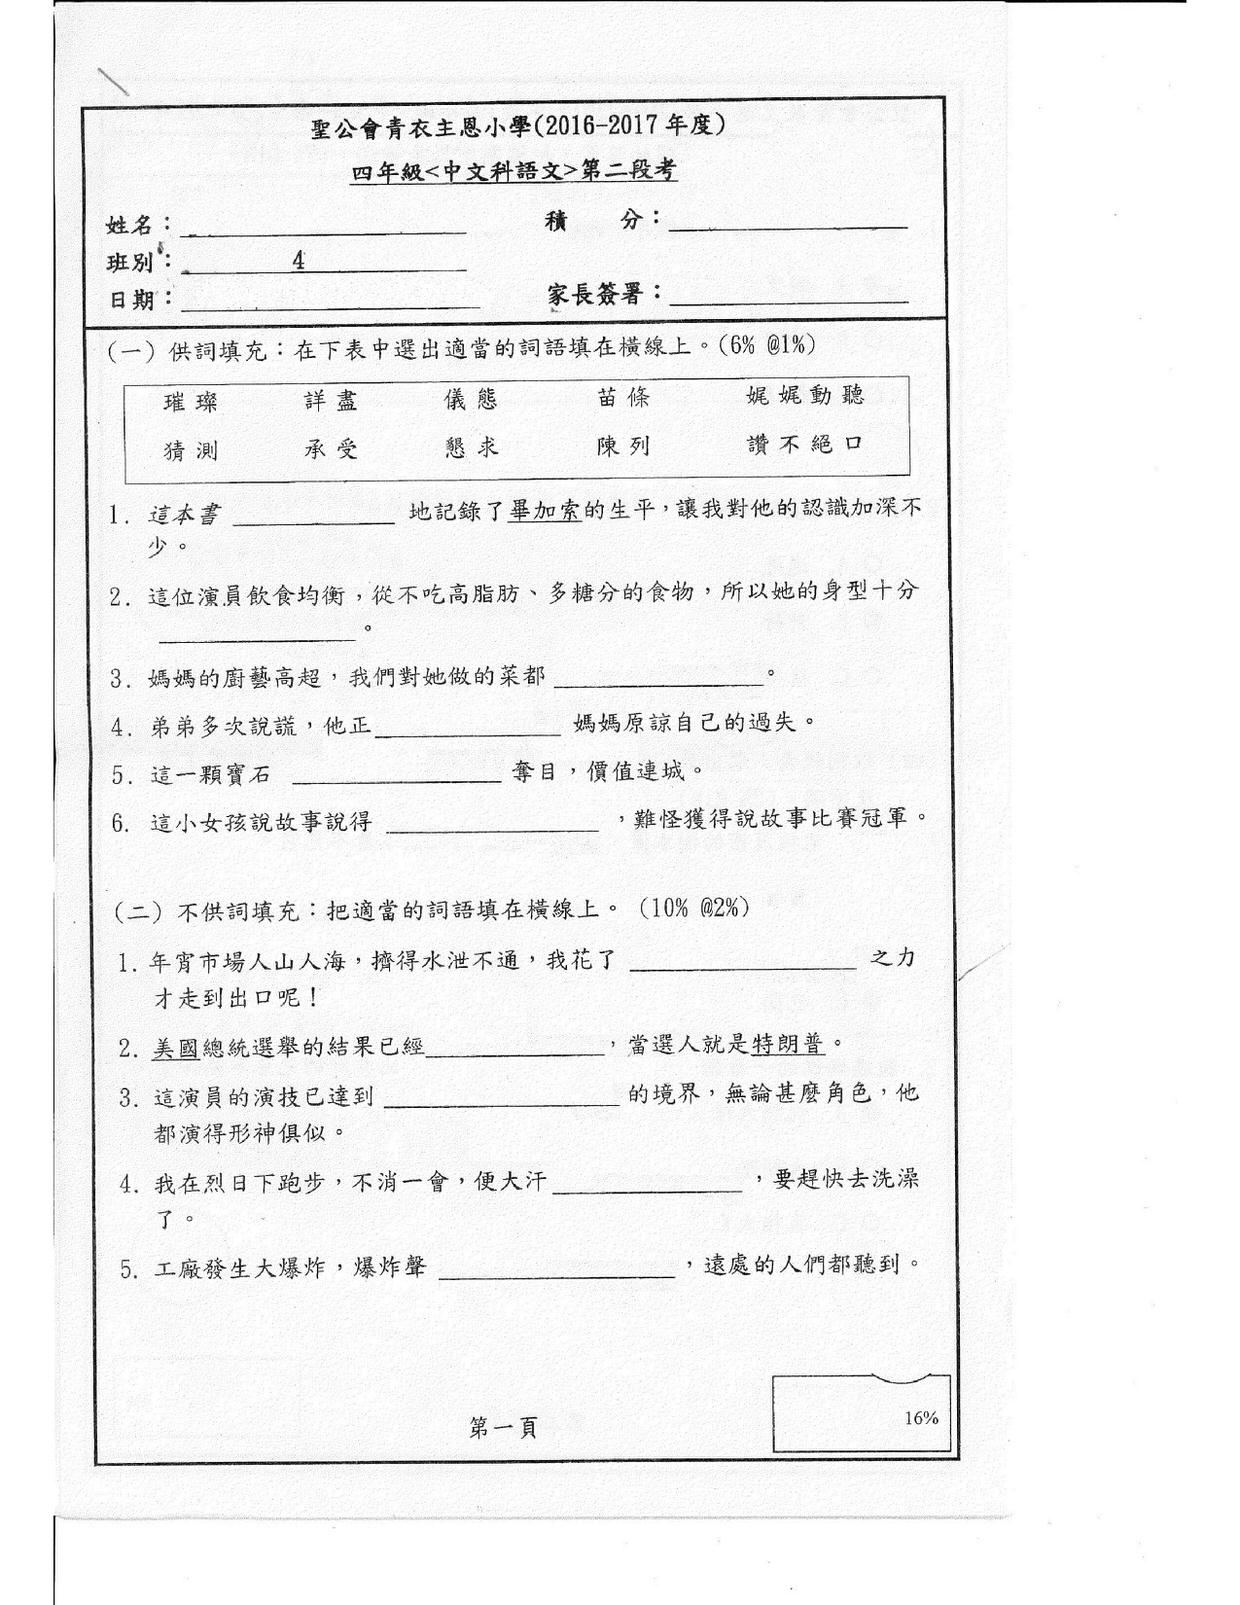 聖公會青衣主恩小學(2016-2017 年度)
四年級<中文科語文>第二段考
姓名：____ 積 分：____
班別：____4____
日期：____ 家長簽署：____
(一) 供詞填充：在下表中選出適當的詞語填在橫線上。(6% @1%)
璀璨 詳盡 儀態 苗條 娓娓動聽
猜測 承受 懇求 陳列 讚不絕口
1. 這本書 ____ 地記錄了畢加索的生平，讓我對他的認識加深不
少。
2. 這位演員飲食均衡，從不吃高脂肪、多糖分的食物，所以她的身型十分
____。
3. 媽媽的廚藝高超，我們對她做的菜都 ____。
4. 弟弟多次說謊，他正____ 媽媽原諒自己的過失。
5. 這一顆寶石 ____ 奪目，價值連城。
6. 這小女孩說故事說得 ____ ，難怪獲得說故事比賽冠軍。
(二) 不供詞填充：把適當的詞語填在橫線上。 (10% @2%)
1. 年宵市場人山人海，擠得水泄不通，我花了 ____ 之力
才走到出口呢！
2. 美國總統選舉的結果已經____，當選人就是特朗普。
3. 這演員的演技已達到 ____ 的境界，無論甚麼角色，他
都演得形神俱似。
4. 我在烈日下跑步，不消一會，便大汗____ ，要趕快去洗澡
了。
5. 工廠發生大爆炸，爆炸聲 ____ ，遠處的人們都聽到。
第一頁
16%